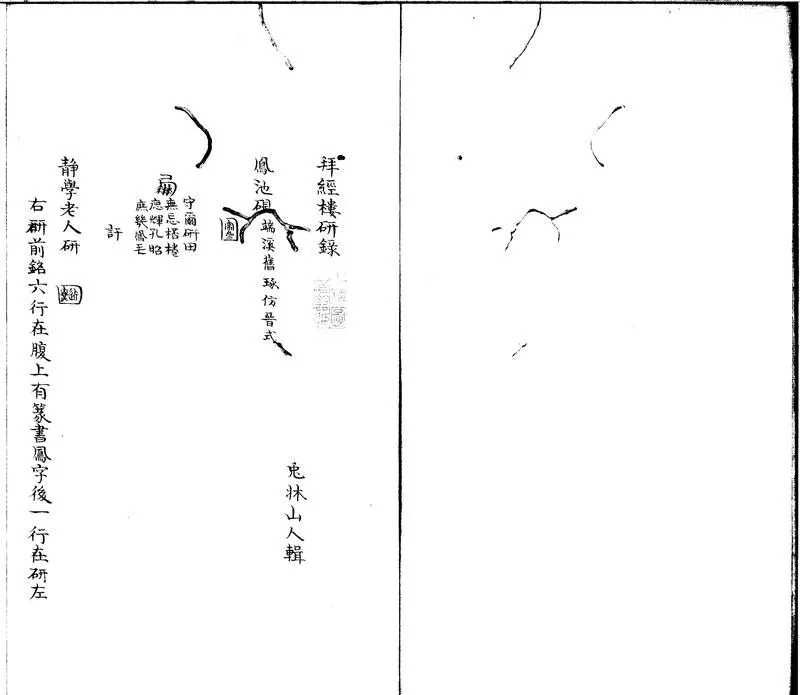 拜經樓研錄
兎牀山人輯
鳳池硯 端溪舊琢仿晉式
守爾研田
無忘榰棲
應輝孔昭
庶幾鳳毛
許
静學老人研
右研前銘六行在腹上有篆書鳳字後一行在研左